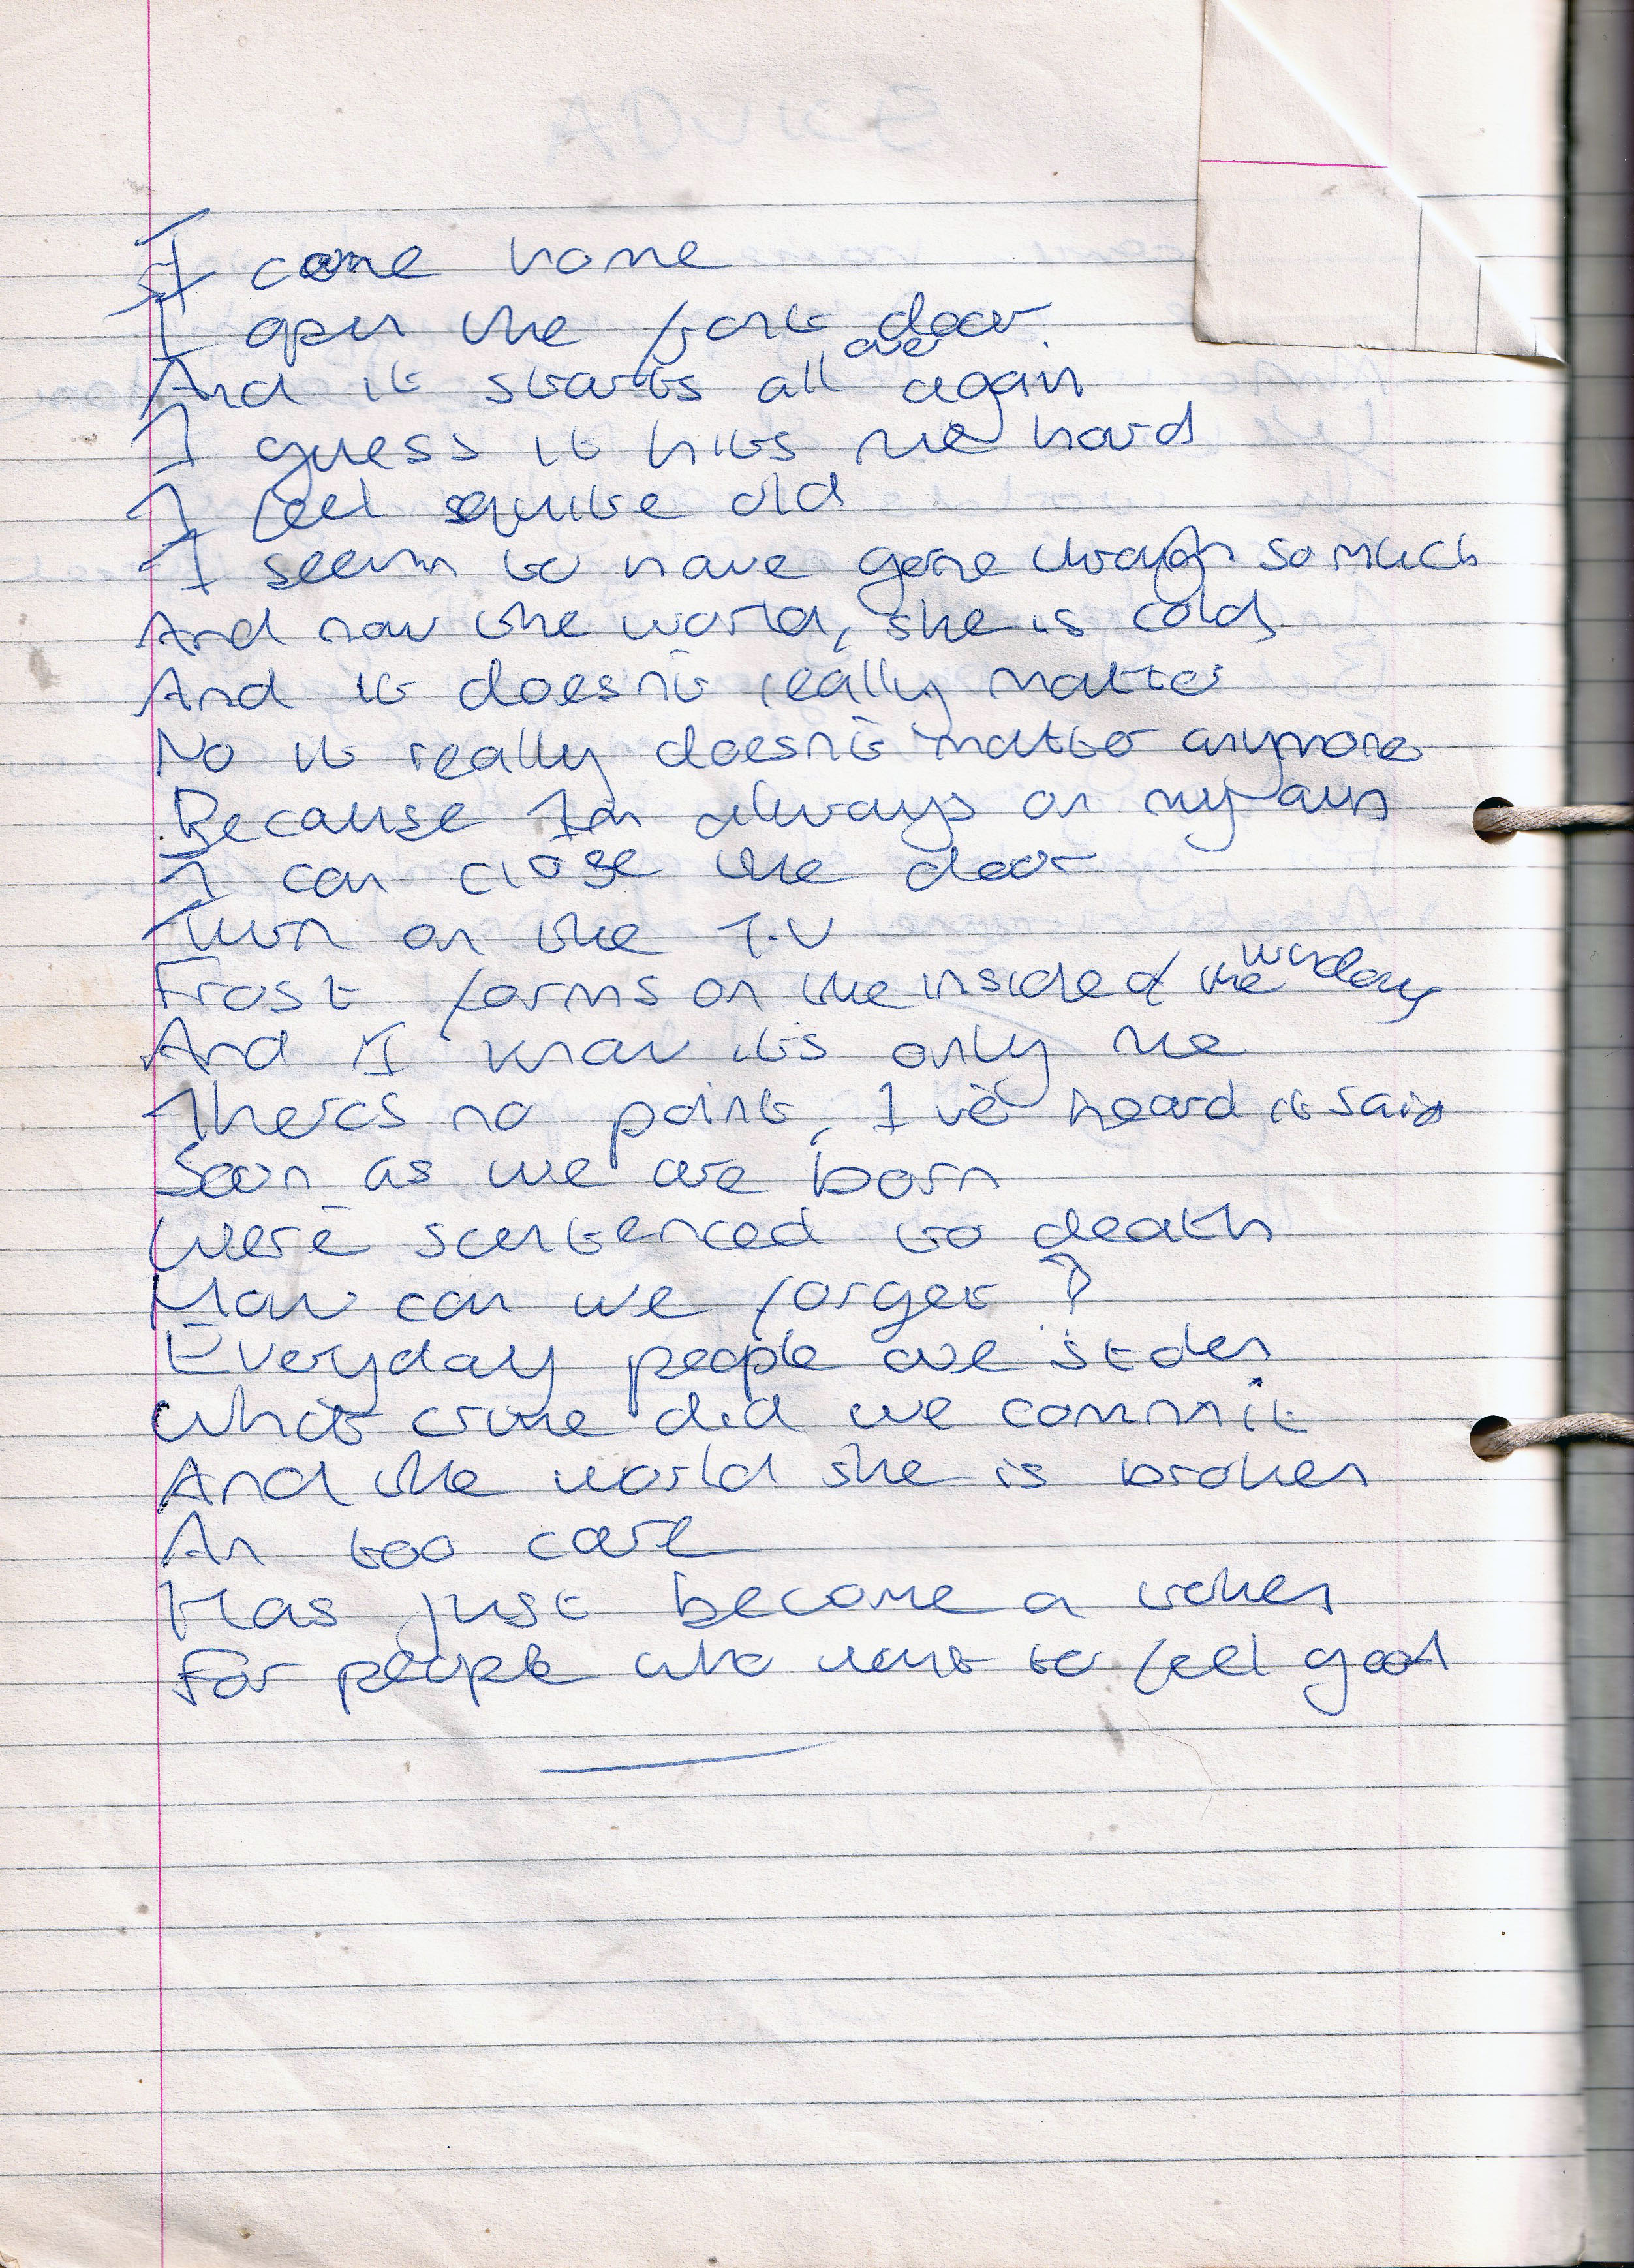 I come home
I open the front door.
And it starts all over again
I guess it hits me hard
I feel quite old
I seem to have gone through so much
And now the world, she is cold
And it doesn't really matter
No it really doesn't matter anymore
Because Im always on my own
I can close the door
Turn on the T.V
Frost forms on the inside of the window
And I know its only me
Theres no point, I've heard it said
Soon as we are born
We're sentenced to death
How can we forget?
Everyday people are stolen
What crime did we commit
And the world she is broken
An too care
Has just become a token
For people who want to feel good